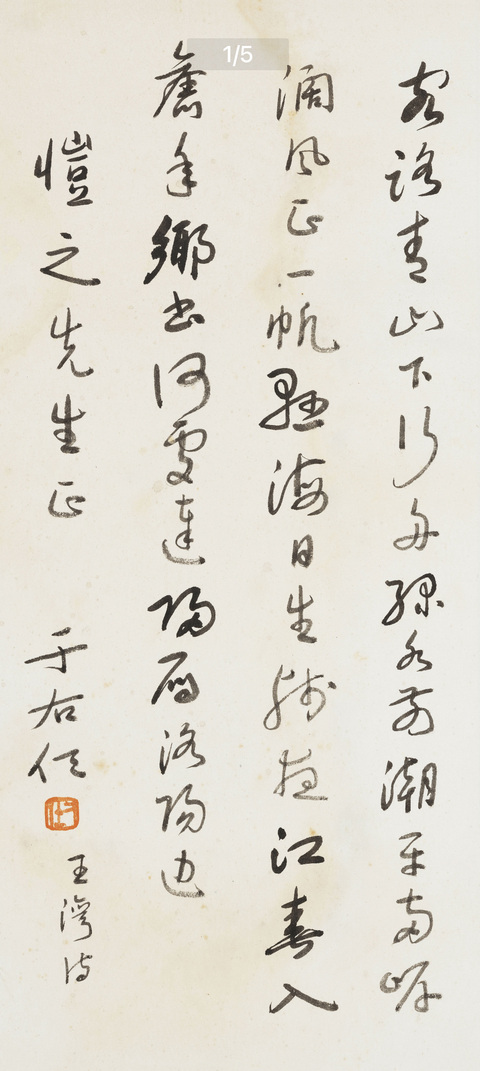 1/5
客路青山下行舟綠水前潮平兩岸
闊風正一帆懸海日生殘夜江春入
舊年鄉書何處達歸雁洛陽邊
愷之先生正
于右任
王灣詩